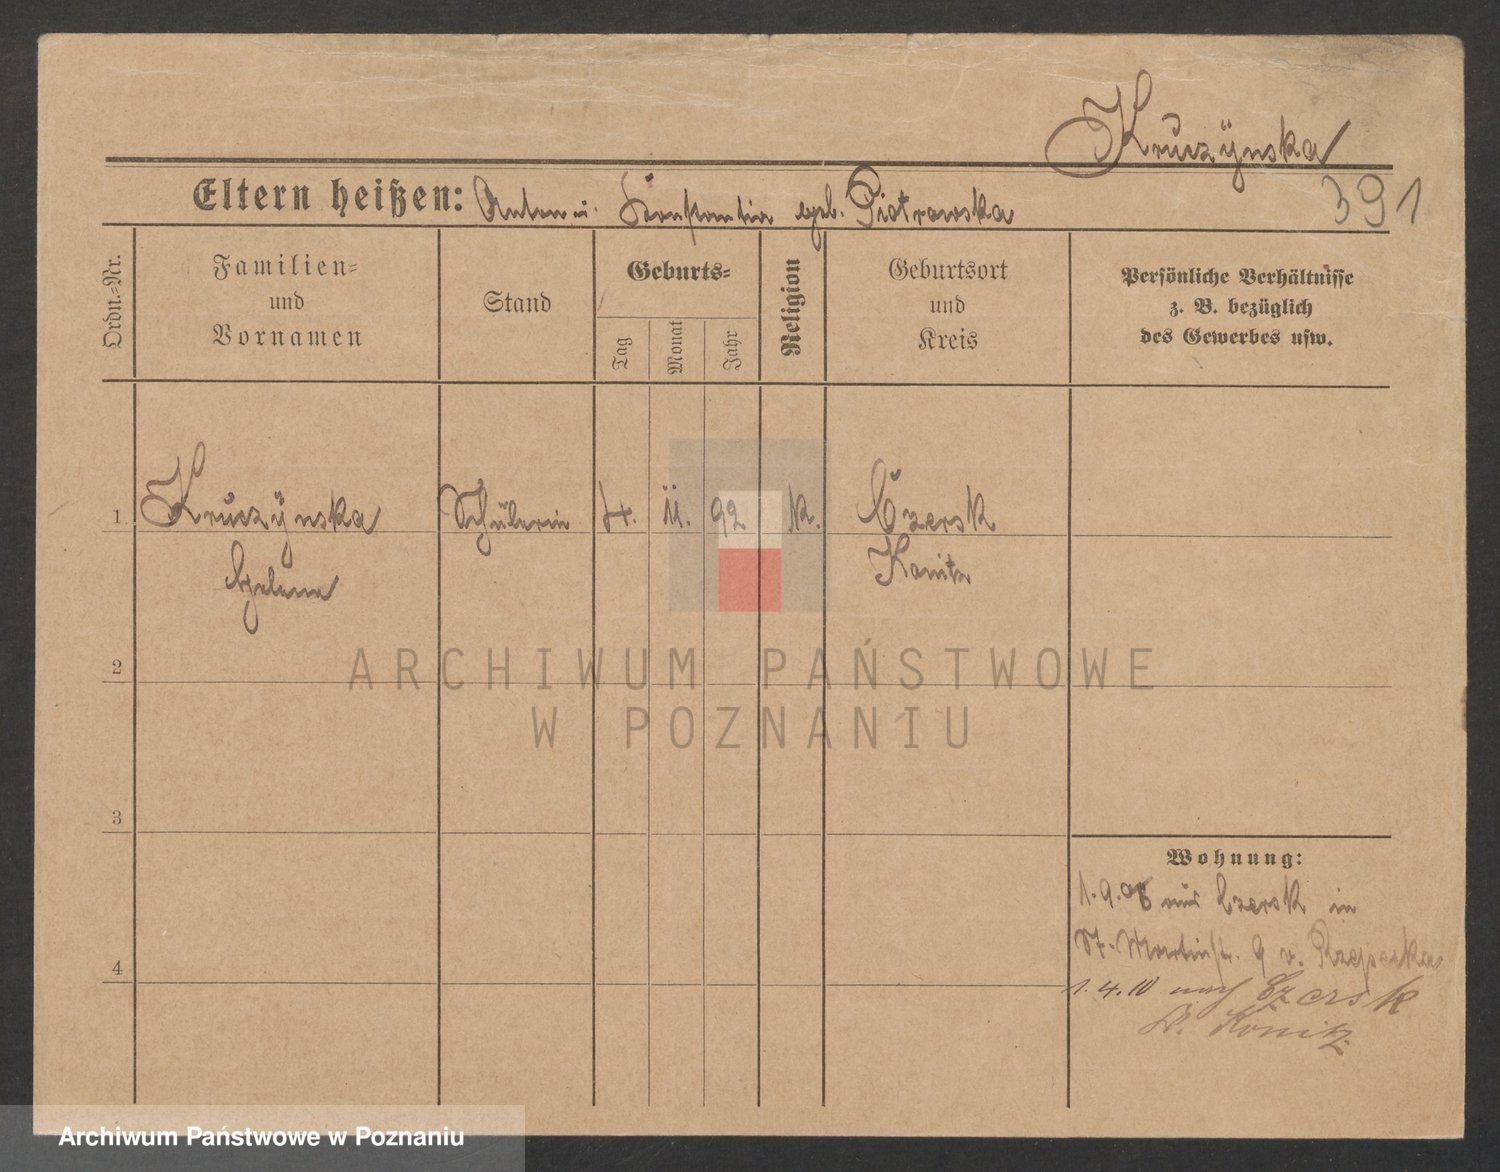 Kruczÿnska
391
Eltern heißen: Anton u. Konstantia geb. Piotrowska
Ordn.=Nr.
Familien=
und
Vornamen
Stand
Geburts=
Tag
Monat
Jahr
Religion
Geburtsort
und
Kreis
Persönliche Verhältnisse
z. B. bezüglich
des Gewerbes usw.
1 Kruczÿnska Schülerin 4. 11. 92 k. Czersk
Helene Konitz
2
3
4
Wohnung:
1.9.08 aus Czersk in
St. Martinstr. 9 v. Rzepecka
1.4.10 nach Czersk
Kr. Konitz
ARCHIWUM PAŃSTWOWE
W POZNANIU
Archiwum Państwowe w Poznaniu